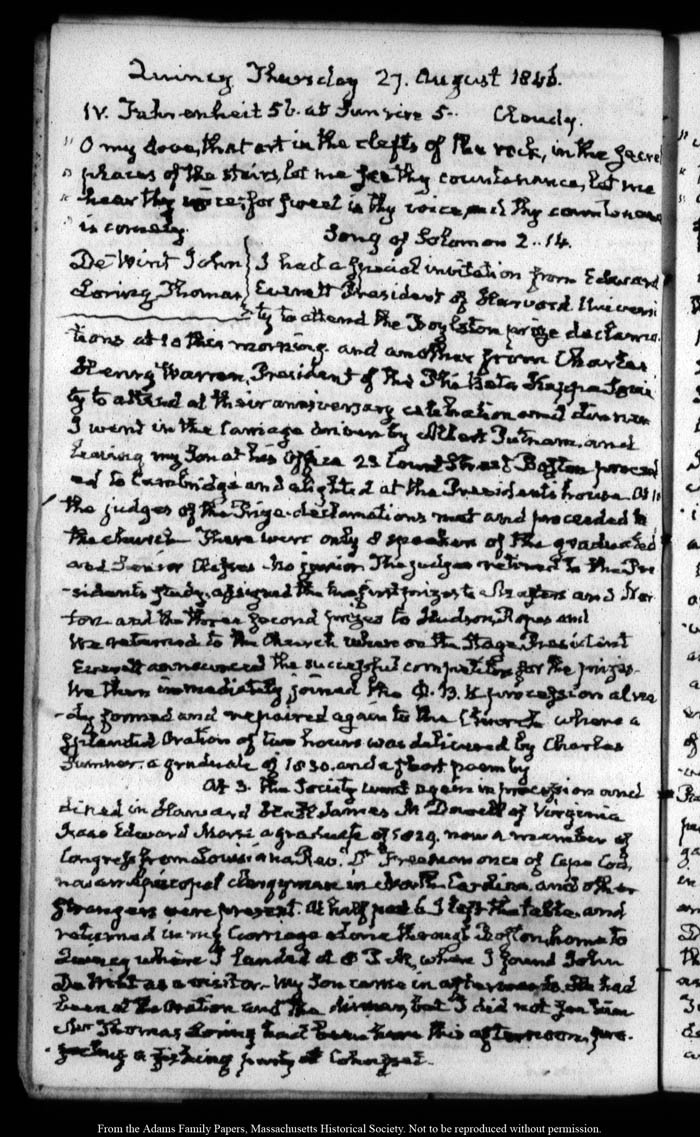 Quincy Thursday 27. August 1846.
IV. Fahrenheit 56. at Sunrise 5.. Cloudy.
" O my dove, that art in the clefts of the rock, in the secret
" places of the stairs, let me see thy countenance, let me
" hear thy voice; for sweet is thy voice, and thy countenance
" is comely.
Song of Solomon 2..14.
De Wint John
Loring Thomas
I had a special invitation from Edward
Everett President of Harvard Universi
ty to attend the Boylston prize declama-
tions at 10 this morning. and another from Charles
Henry Warren, President of the Phi Beta Kappa Socie
ty to attend at their anniversary celebration and dinner
I went in the Carriage driven by Albert Putnam, and
leaving my Son at his Office 23 Court Street Boston proceed
ed to Cambridge and alighted at the President's house. At 10
the judges of the Prize-declamations met and proceeded to
the church There were only 8 speakers of the graduated
and Senior Classes - no junior. The judges returned to the Pre
-sidents study, assigned the two first prizes to and Nor
ton and the three second prizes to Hudson, Ropes and
We returned to the Church where on the Stage President
Everett announced the successful competitors for the prizes.
We then immediately joined the Φ. B. K procession alrea
-dy formed and repaired again to the Church where a
splendid Oration of two hours was delivered by Charles
Sumner, a graduate of 1830. and a short poem by
At 3. the Society went again in procession and
dined in Harvard Hall James McDowell of Virginia
Isaac Edward Morse a graduate of 1829. now a member of
Congress from Louisiana Rev.d Dr Freeman once of Cape Cod,
now an Episcopal clergyman in North Carolina, and other
Strangers were present. At half past 6 I left the table, and
returned in my Carriage alone through Boston, home to
Quincy where I landed at 8 where I found John
De Wint as a visitor - My Son came in afterwards. He had
been at the Oration and the dinner, but I did not see him
Mr Thomas Loring had been here this afternoon, pro-
-jecting a fishing party at Cohasset.
From the Adams Family Papers, Massachusetts Historical Society. Not to be reproduced without permission.